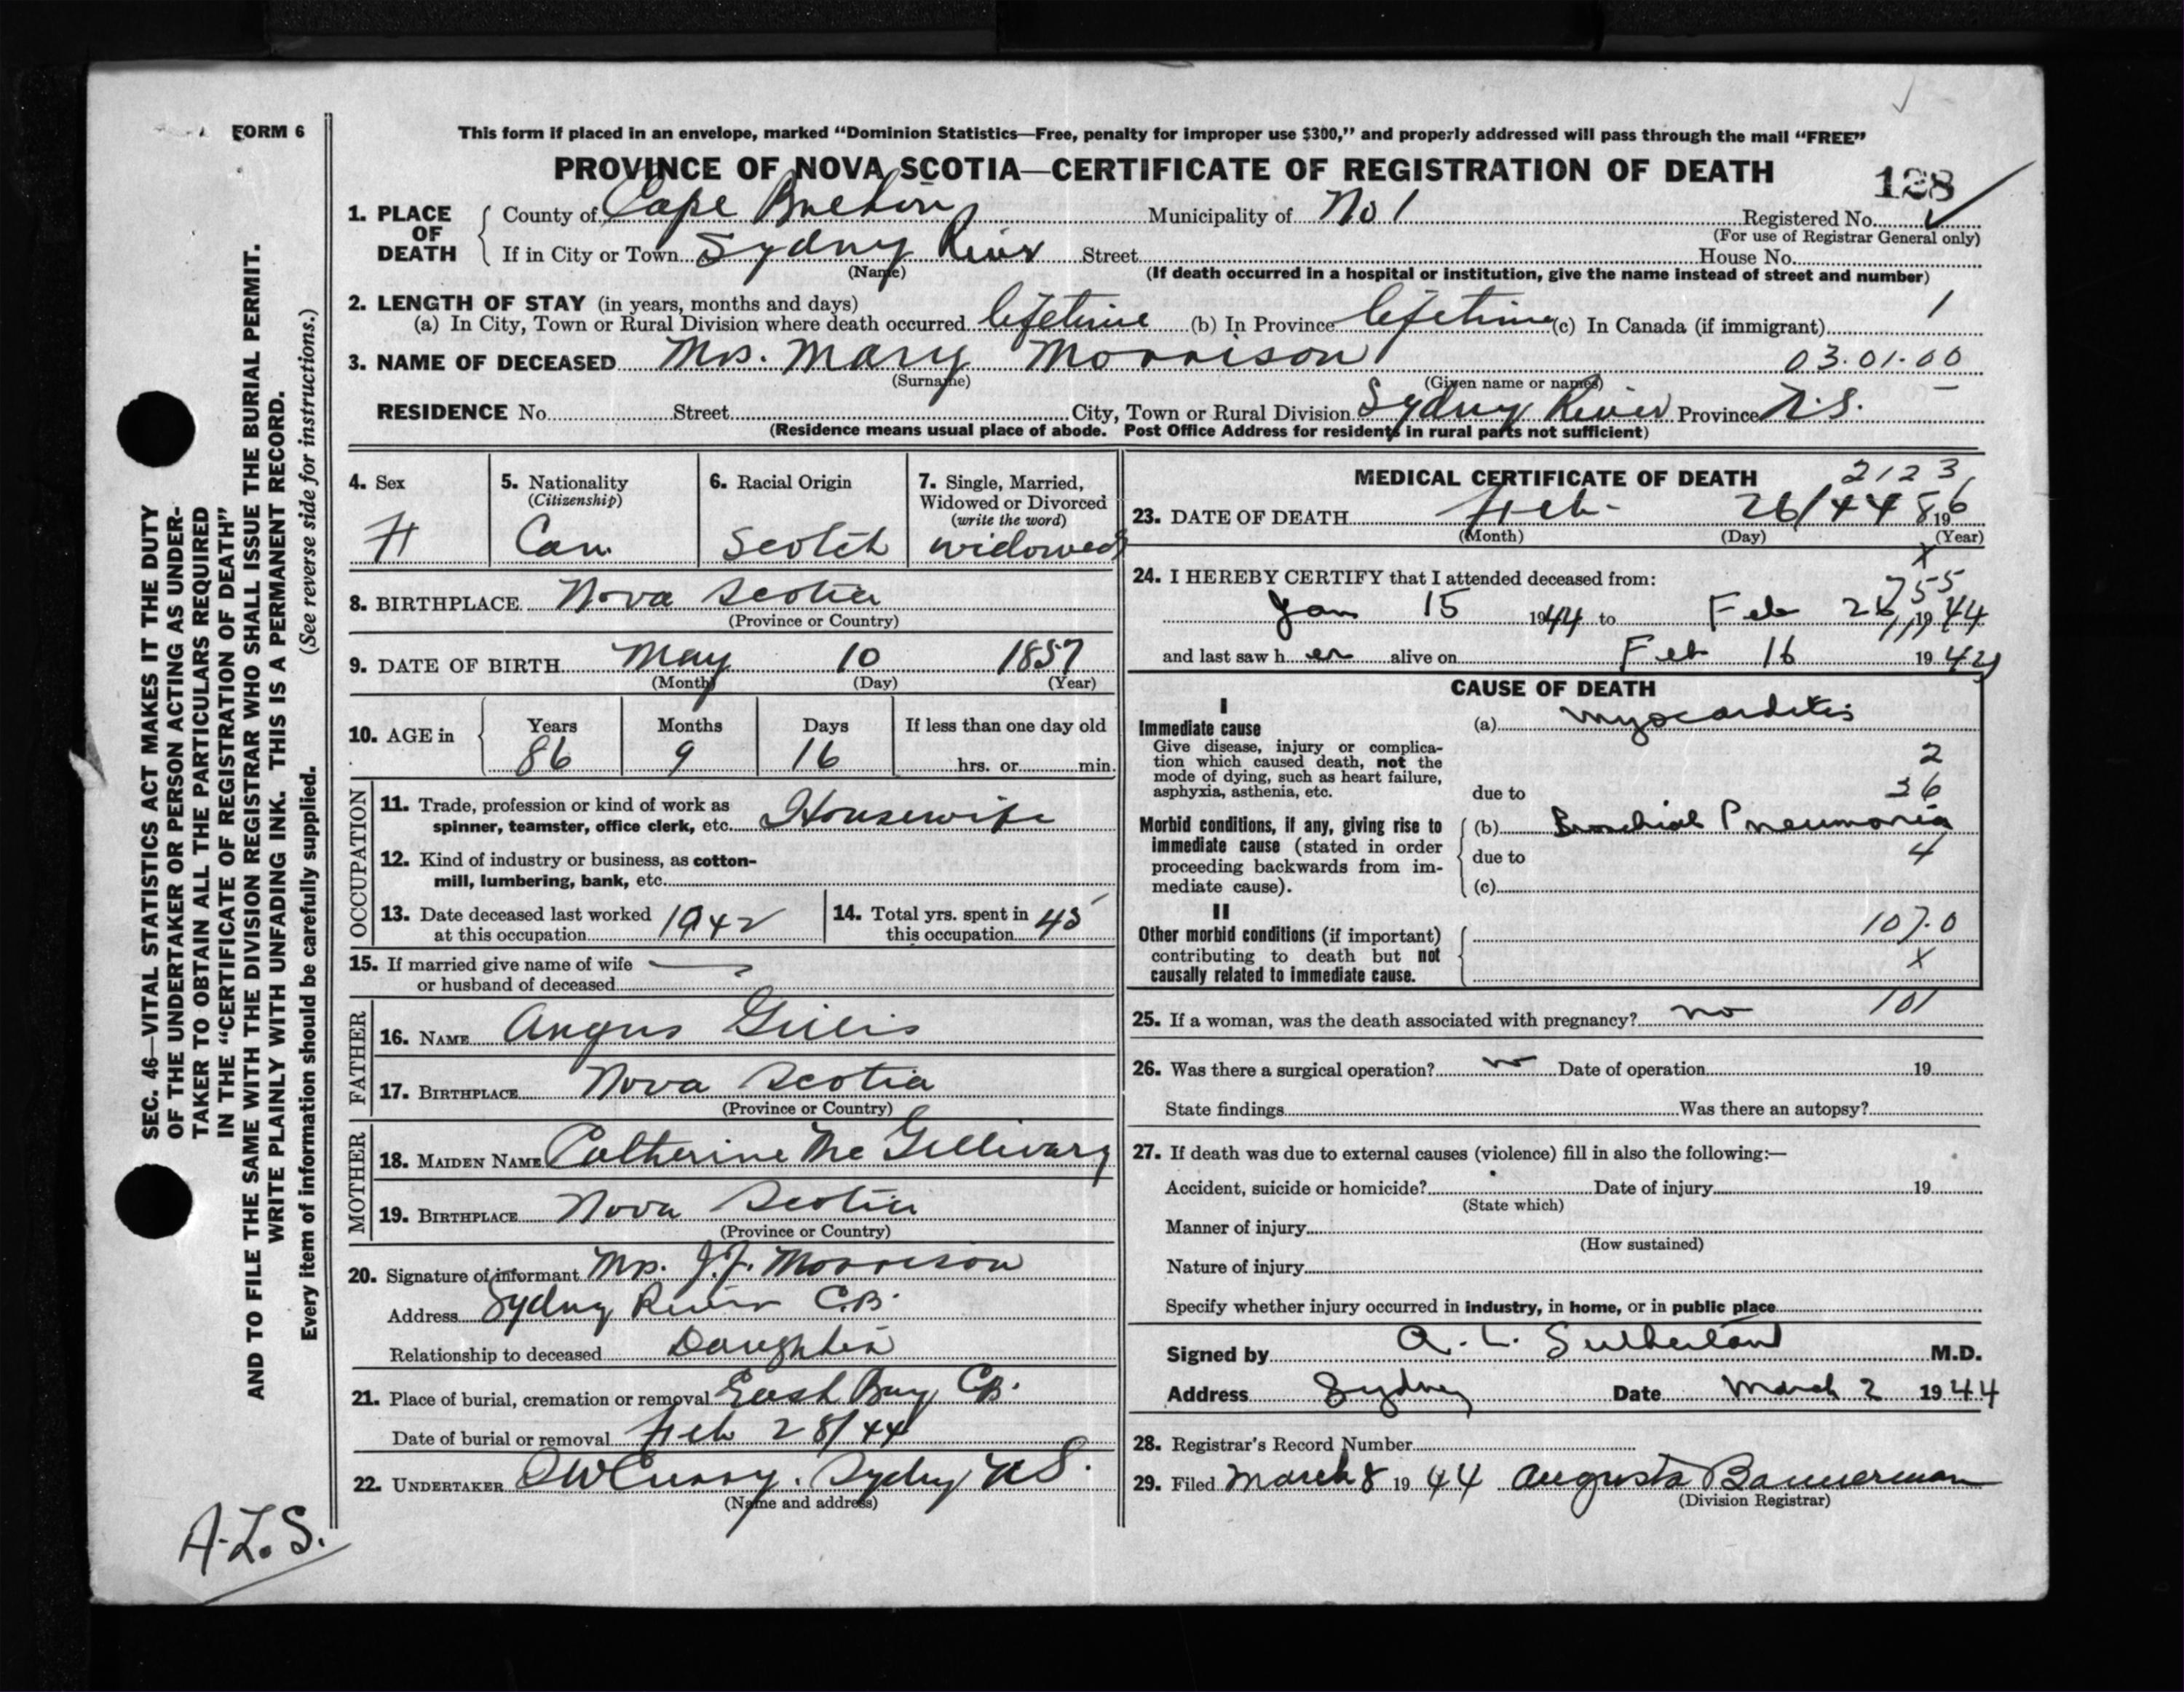 FORM 6
This form if placed in an envelope, marked “Dominion Statistics—Free, penalty for improper use $300,” and properly addressed will pass through the mail “FREE”
PROVINCE OF NOVA SCOTIA—CERTIFICATE OF REGISTRATION OF DEATH
128
1. PLACE OF DEATH
County of Cape Breton Municipality of No 1 Registered No.
(For use of Registrar General only)
If in City or Town Sydney River Street House No.
(Name) (If death occurred in a hospital or institution, give the name instead of street and number)
2. LENGTH OF STAY (in years, months and days)
(a) In City, Town or Rural Division where death occurred lifetime (b) In Province lifetime (c) In Canada (if immigrant) 1
3. NAME OF DECEASED Mrs. Mary Morrison 03.01.00
(Surname) (Given name or names)
RESIDENCE No. Street City, Town or Rural Division Sydney River Province N.S.
(Residence means usual place of abode. Post Office Address for residents in rural parts not sufficient)
4. Sex
F
5. Nationality
(Citizenship)
Can.
6. Racial Origin
Scotch
7. Single, Married,
Widowed or Divorced
(write the word)
widowed
8. BIRTHPLACE Nova Scotia
(Province or Country)
9. DATE OF BIRTH May 10 1857
(Month) (Day) (Year)
10. AGE in
Years Months Days If less than one day old
86 9 16 hrs. or min.
OCCUPATION
11. Trade, profession or kind of work as
spinner, teamster, office clerk, etc. Housewife
12. Kind of industry or business, as cotton-
mill, lumbering, bank, etc.
13. Date deceased last worked
at this occupation 1942
14. Total yrs. spent in
this occupation 45
15. If married give name of wife
or husband of deceased
FATHER
16. NAME Angus Gillis
17. BIRTHPLACE Nova Scotia
(Province or Country)
MOTHER
18. MAIDEN NAME Catherine Mc Gillivary
19. BIRTHPLACE Nova Scotia
(Province or Country)
20. Signature of informant Mrs. J.J. Morrison
Address Sydney River C.B.
Relationship to deceased Daughter
21. Place of burial, cremation or removal East Bay C.B.
Date of burial or removal Feb 28/44
22. UNDERTAKER Sydney N S.
(Name and address)
MEDICAL CERTIFICATE OF DEATH 2123
23. DATE OF DEATH Feb- 26/44 86 19
(Month) (Day) (Year)
X
24. I HEREBY CERTIFY that I attended deceased from: 755
Jan 15 1944 to Feb 26 1944
and last saw her alive on Feb 16 1944
CAUSE OF DEATH
I
Immediate cause
Give disease, injury or complica-
tion which caused death, not the
mode of dying, such as heart failure,
asphyxia, asthenia, etc.
(a) Myocarditis
2
36
due to
Morbid conditions, if any, giving rise to
immediate cause (stated in order
proceeding backwards from im-
mediate cause).
(b) Bronchial Pneumonia
due to 4
(c)
II
Other morbid conditions (if important)
contributing to death but not
causally related to immediate cause.
107.0
X
101
25. If a woman, was the death associated with pregnancy? no
26. Was there a surgical operation? no Date of operation 19
State findings Was there an autopsy?
27. If death was due to external causes (violence) fill in also the following:—
Accident, suicide or homicide? Date of injury 19
(State which)
Manner of injury
(How sustained)
Nature of injury
Specify whether injury occurred in industry, in home, or in public place
Signed by A. L. Sutherland M.D.
Address Sydney Date March 2 1944
28. Registrar's Record Number
29. Filed March 8 1944 Augusta Bannerman
(Division Registrar)
SEC. 46—VITAL STATISTICS ACT MAKES IT THE DUTY
OF THE UNDERTAKER OR PERSON ACTING AS UNDER-
TAKER TO OBTAIN ALL THE PARTICULARS REQUIRED
IN THE “CERTIFICATE OF REGISTRATION OF DEATH”
AND TO FILE THE SAME WITH THE DIVISION REGISTRAR WHO SHALL ISSUE THE BURIAL PERMIT.
WRITE PLAINLY WITH UNFADING INK. THIS IS A PERMANENT RECORD.
Every item of information should be carefully supplied. (See reverse side for instructions.)
A.L.S.